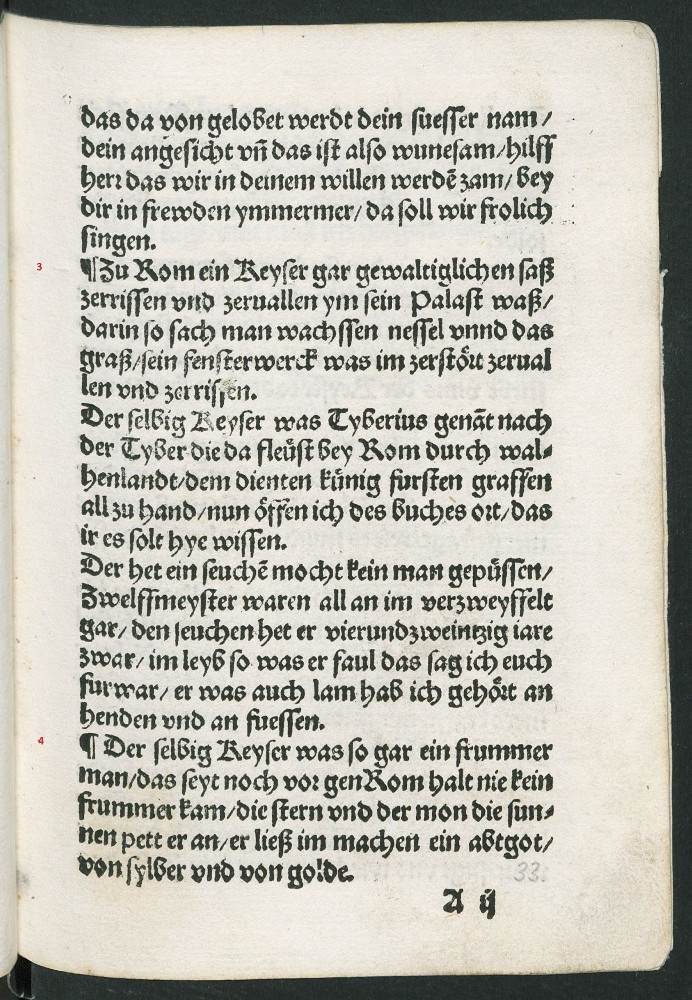 das da von gelobet werdt dein suesser nam /
dein angesicht vn̄ das ist also wunesam / hilff
herr das wir in deinem willen werdē zam / bey
dir in frewden ymmermer / da soll wir frolich
singen.
3
¶ Zu Rom ein Keyser gar gewaltiglichen saß
zerrissen vnd zeruallen ym sein Palast waß /
darin so sach man wachssen nessel vnnd das
graß / sein fensterwerck was im zerstört zerual
len vnd zerrissen.
Der selbig Keyser was Tyberius genāt nach
der Tyber die da fleüst bey Rom durch wal⸗
henlandt / dem dienten künig fursten graffen
all zu hand / nun öffen ich des buches ort / das
ir es solt hye wissen.
Der het ein seuchē mocht kein man gepüssen /
Zwelffmeyster waren all an im verzweyffelt
gar / den seuchen het er vierundzweintzig iare
zwar / im leyb so was er faul das sag ich euch
furwar / er was auch lam hab ich gehört an
henden vnd an fuessen.
4
¶ Der selbig Keyser was so gar ein frummer
man / das seyt noch vor gen Rom halt nie kein
frummer kam / die stern vnd der mon die sun⸗
nen pett er an / er ließ im machen ein abtgot /
von sylber vnd von golde.
33.
A ij